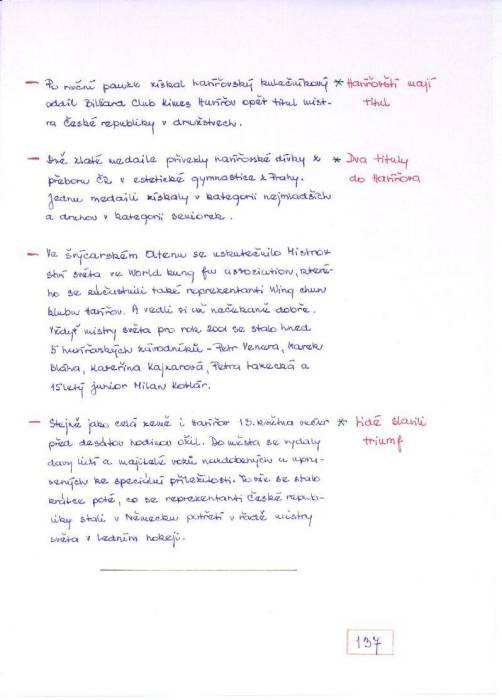 - Po roční pauze získal havířovský kulečníkový
oddíl Billiard Club Kimex Havířov opět titul mist-
ra České republiky v družstvech.
* Havířovští mají
titul
- Dvě zlaté medaile přivezly havířovské dívky z
přeboru ČR v estetické gymnastice z Prahy.
Jednu medaili získaly v kategorii nejmladších
a druhou v kategorii seniorek.
* Dva tituly
do Havířova
- Ve švýcarském Oltenu se uskutečnilo Mistrov
ství světa ve World kung fu association, které-
ho se zúčastnili také reprezentanti Wing chun
klubu Havířov. A vedli si až nečekaně dobře.
Vždyť mistry světa pro rok 2001 se stalo hned
5 havířovských závodníků - Petr Venera, Marek
Bláha, Kateřina Kajzarová, Petra a
15letý junior Milan Kotlár.
- Stejně jako celá země i Havířov 13. května večer
před desátou hodinou ožil. Do města se vydaly
davy lidí a majitelé vozů nazdobených a upra-
vených ke speciální příležitosti. To vše se stalo
krátce poté, co se reprezentanti České repub-
liky stali v Německu potřetí v řadě mistry
světa v ledním hokeji.
* Lidé slavili
triumf
137